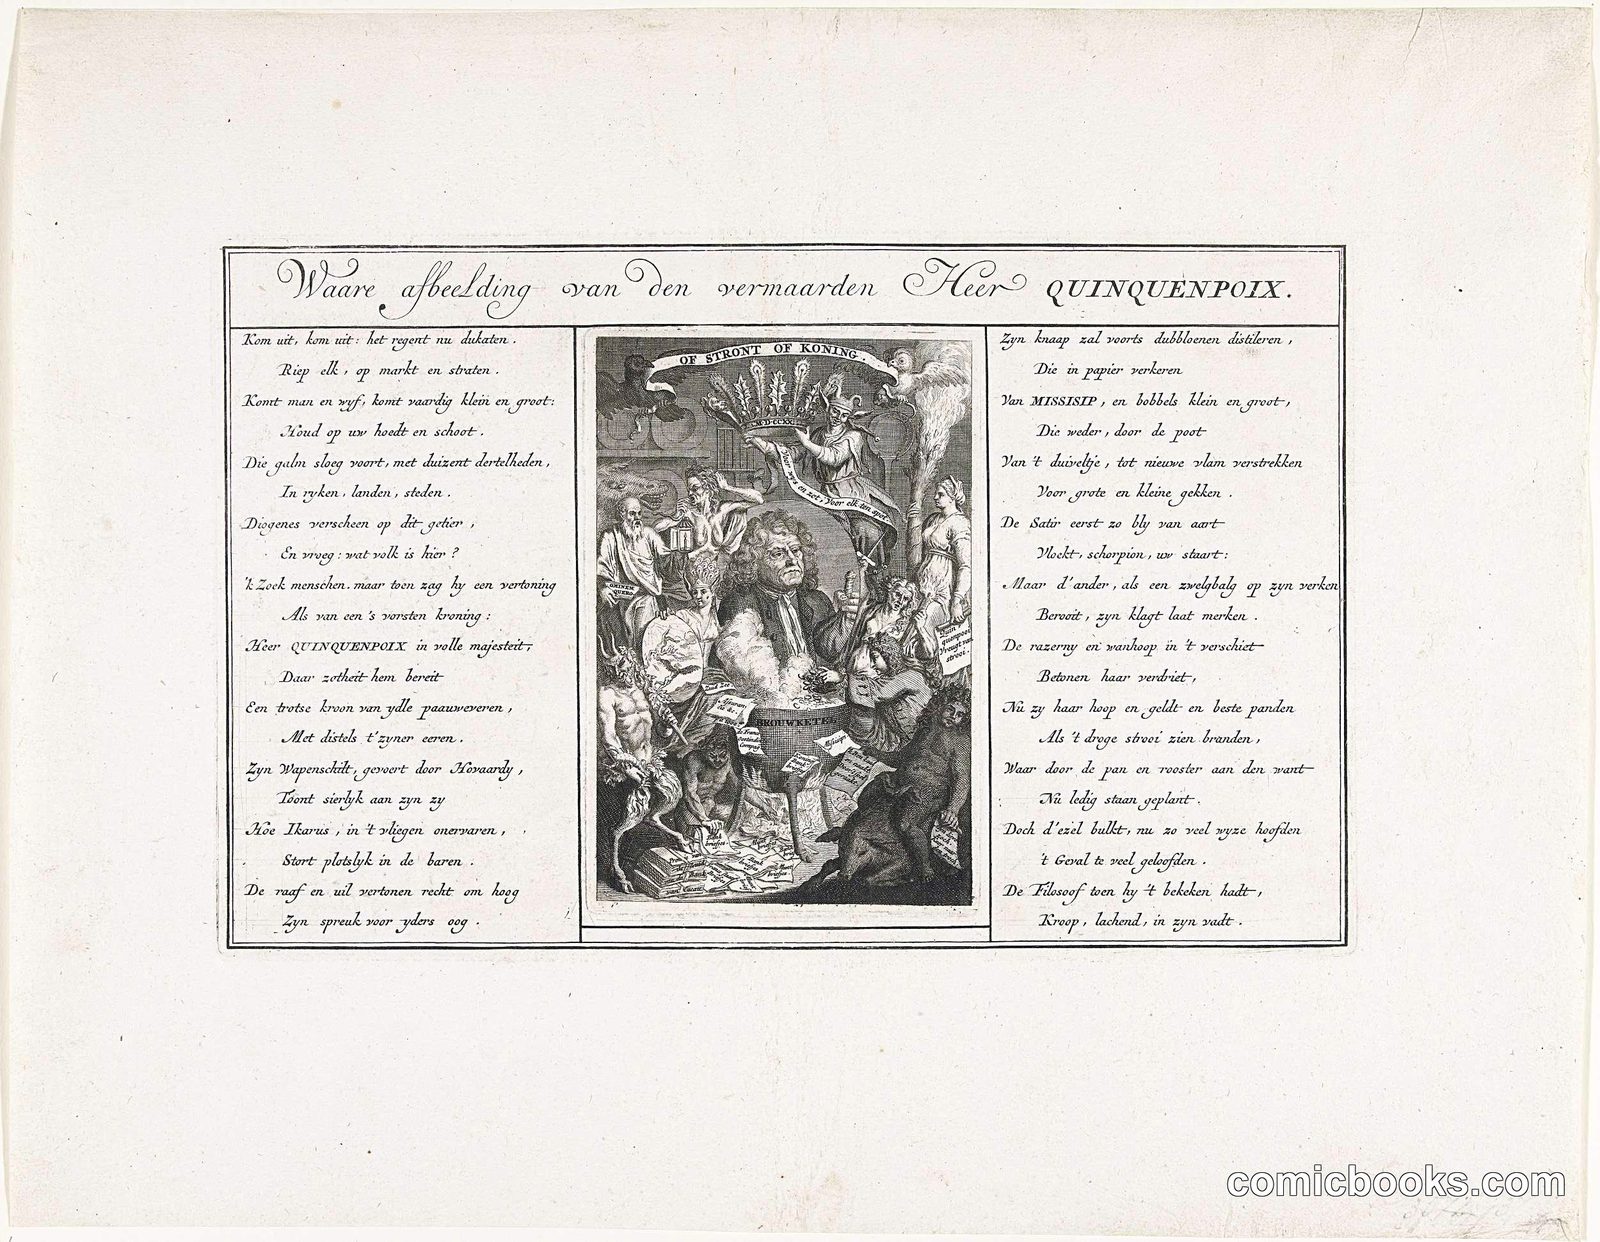 Waare afbeelding van den vermaarden Heer QUINQUENPOIX.
Kom uit, kom uit: het regent nu dukaten.
Riep elk, op markt en straten.
Komt man en wyf, komt vaardig klein en groot:
Houd op uw hoedt en schoot.
Die galm sloeg voort, met duizent dertelheden,
In ryken, landen, steden.
Diogenes verscheen op dit getier,
En vroeg: wat volk is hier?
'k Zoek menschen. maar toen zag hy een vertoning
Als van een's vorsten kroning:
Heer QUINQUENPOIX in volle majesteit,
Daar zotheit hem bereit
Een trotse kroon van ydle paauweveren,
Met distels t'zyner eeren.
Zyn Wapenschilt, gevoert door Hovaardy,
Toont sierlyk aan zyn zy
Hoe Ikarus, in 't vliegen onervaren,
Stort plotslyk in de baren.
De raaf en uil vertonen recht om hoog
Zyn spreuk voor yders oog.
OF STRONT OF KONING.
MDCCXX
Voor wys en zot, Voor elk ten spot
BROUWKETEL
Missisipi
Zyn knaap zal voorts dubbloenen distileren,
Die in papier verkeren
Van MISSISIP, en bobbels klein en groot,
Die weder, door de poot
Van 't duiveltje, tot nieuwe vlam verstrekken
Voor grote en kleine gekken.
De Satir eerst zo bly van aart
Vloekt, schorpion, uw staart:
Maar d'ander, als een zwelgbalg op zyn verken
Berooit, zyn klagt laat merken.
De razerny en wanhoop in 't verschiet
Betonen haar verdriet,
Nu zy haar hoop en geldt en beste panden
Als 't droge strooi zien branden,
Waar door de pan en rooster aan den want
Nu ledig staan geplant.
Doch d'ezel bulkt, nu zo veel wyze hoofden
't Geval te veel geloofden.
De Filosoof toen hy 't bekeken hadt,
Kroop, lachend, in zyn vadt.
comicbooks.com